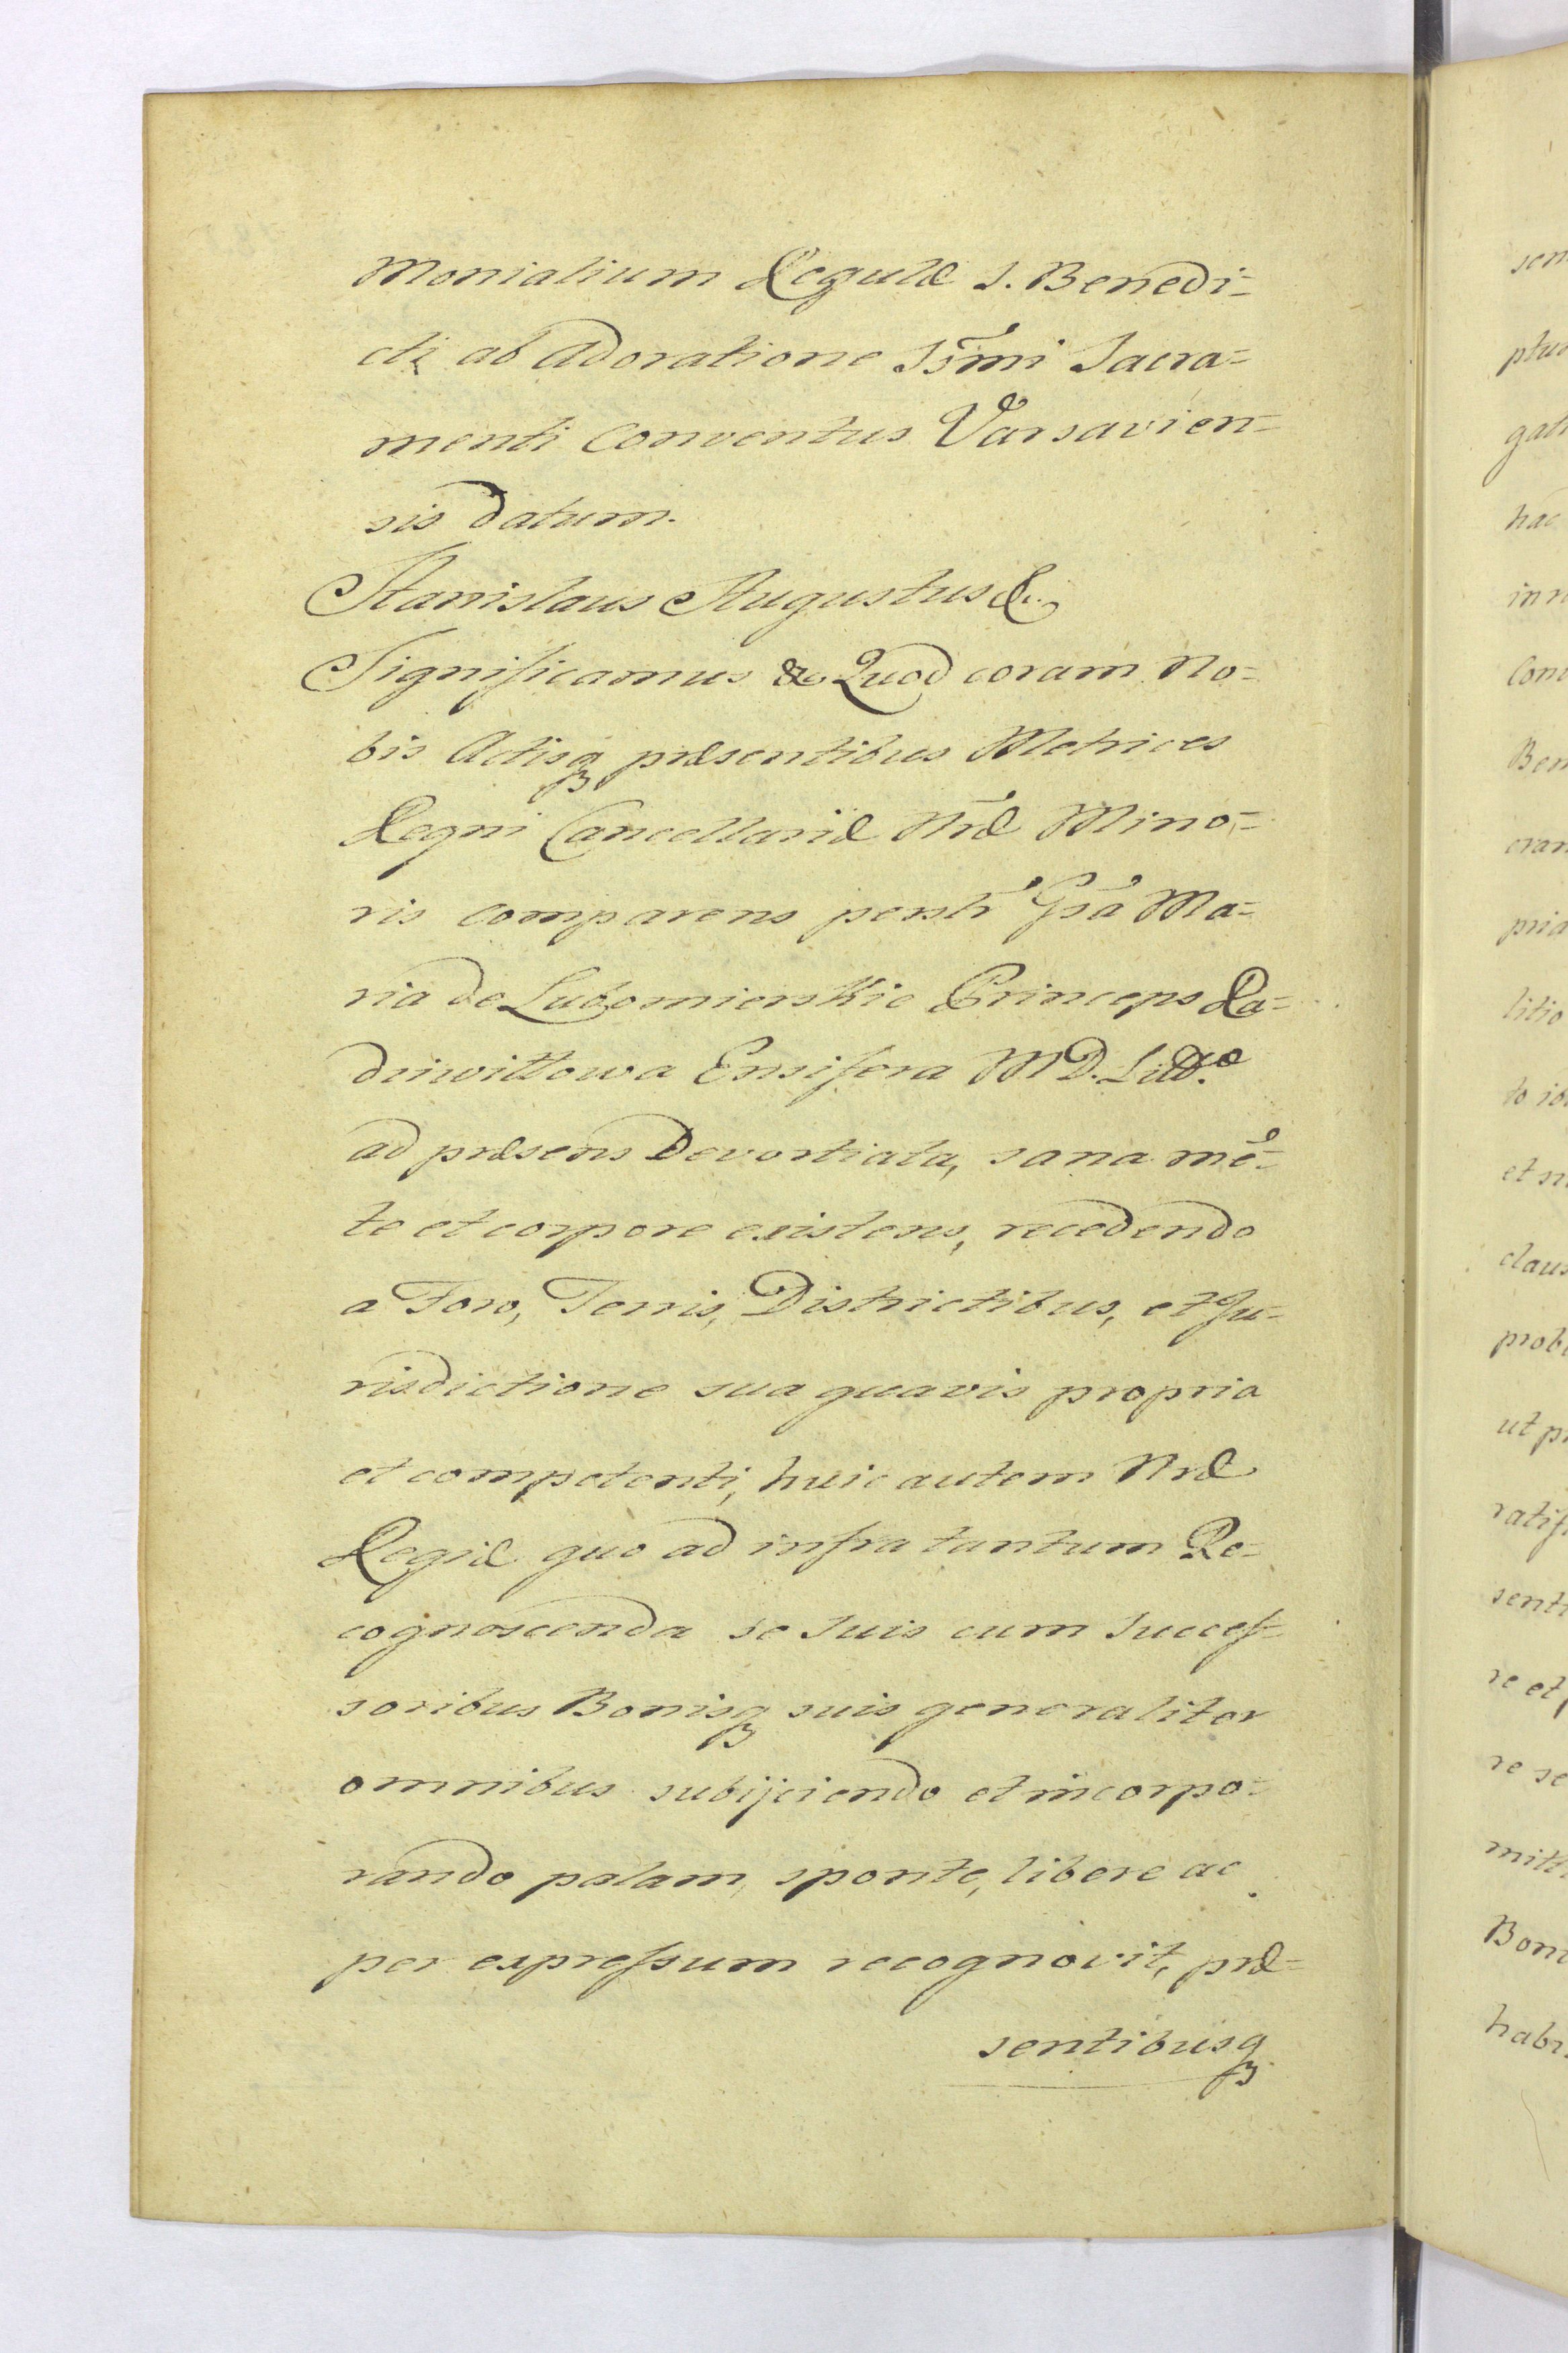 Monialium Regulæ S. Benedi=
cti ab Adoratione Ss̃mi Sacra=
menti Conventus Varsavien=
sis datum.
Stanislaus Augustus &c
Significamus &c Quod coram No=
bis Actisqꝫ præsentibus Metrices
Regni Cancellariæ Nr̃æ Mino=
ris comparens persltr̃ Gsã Ma=
ria de Lubomierskie Princeps Ra=
dziwiłłowa Ensifera M D. Litt.æ
ad præsens Devortiata, sana mẽ=
te et corpore existens, recedendo
a Foro, Terris, Districtibus, et Ju=
risdictione sua quavis propria
et competenti, huic autem Nræ
Regiæ quo ad infra tantum Re=
cognoscenda se suis cum Succes=
soribus Bonisqꝫ suis generaliter
omnibus subijciendo et incorpo=
rando palam, sponte, libere ac
per expressum recognovit, præ=
sentibusqꝫ
sen
ptu
gati
hac
in r
Conv
Ben
cran
pria
litio
to ib
et n
claus
prob
ut p
ratif
senti
re et
re se
mitt
Boni
habi